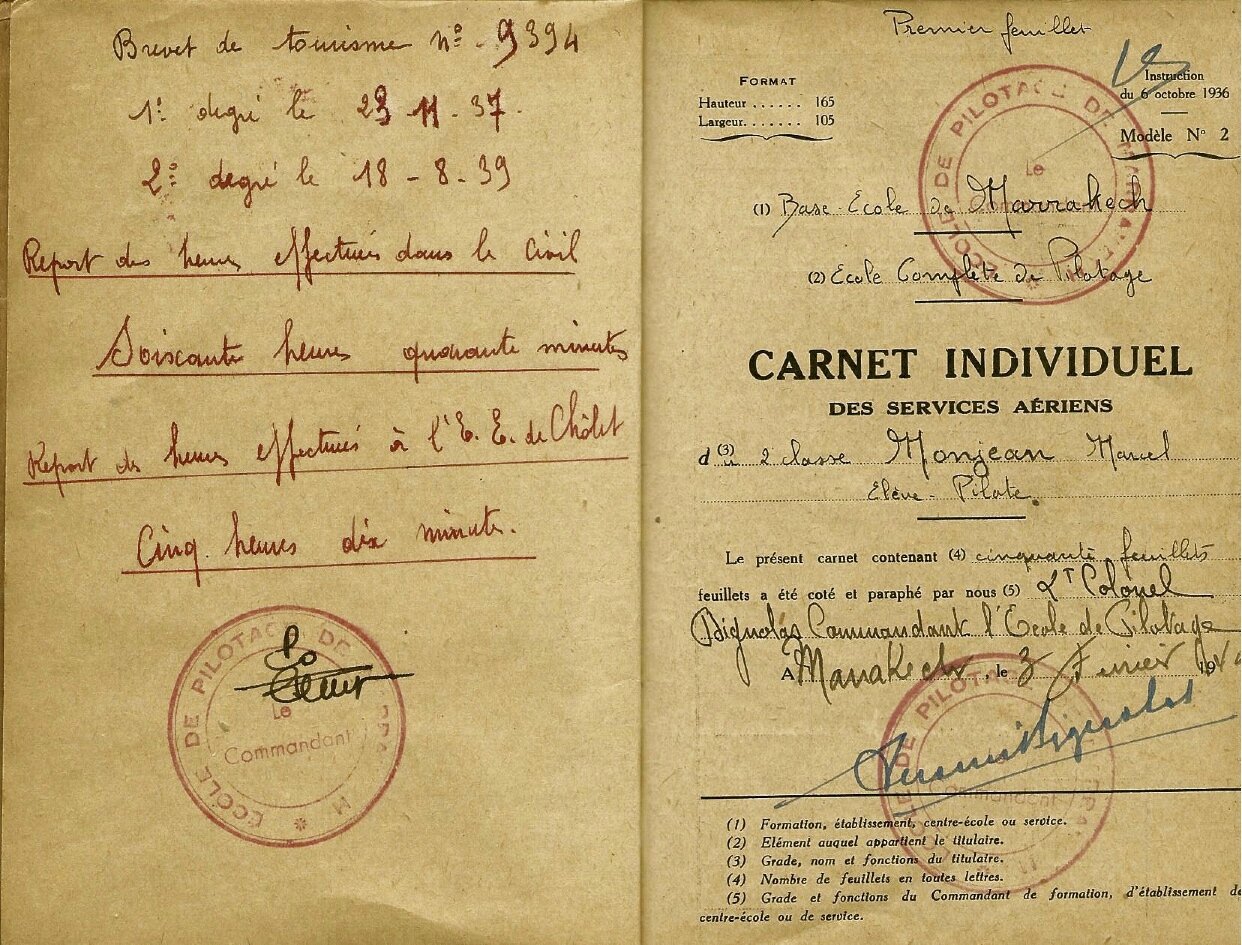 Brevet de tourisme nº - 9394
1º degré le 23 - 11 - 37.
2º degré le 18 - 8 - 39
Report des heures effectuées dans le Civil
Soixante heures quarante minutes
Report des heures effectuées à l'E. E. de Chôlet
Cinq heures dix minutes.
ÉCOLE DE PILOTAGE DE
Le
Commandant
Premier feuillet
FORMAT
Hauteur ...... 165
Largeur ...... 105
Instruction
du 6 octobre 1936
Modèle Nº 2
ÉCOLE DE PILOTAGE DE
Le
(1) Base Ecole de Marrakech
(2) Ecole Complète de Pilotage
CARNET INDIVIDUEL
DES SERVICES AÉRIENS
d (3) u 2 classe Monjean Marcel
Elève - Pilote.
Le présent carnet contenant (4) cinquante feuillets
feuillets a été coté et paraphé par nous (5) Lt Colonel
Bignolas Commandant l'Ecole de Pilotage
A Marrakech, le 3 Février 194
DE PILOTAGE
Commandant
(1) Formation, établissement, centre-école ou service.
(2) Elément auquel appartient le titulaire.
(3) Grade, nom et fonctions du titulaire.
(4) Nombre de feuillets en toutes lettres.
(5) Grade et fonctions du Commandant de formation, d'établissement de
centre-école ou de service.